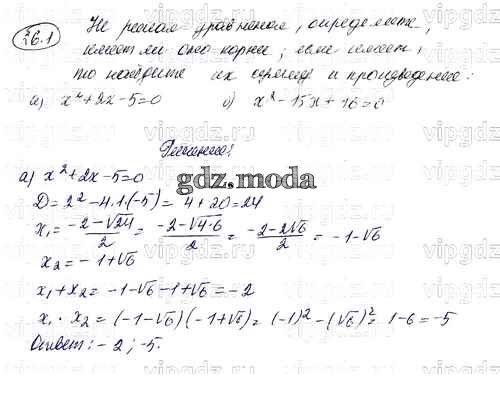 26.1
Не решая уравнения, определите,
имеет ли оно корни; если имеет,
то найдите их сумму и произведение:
а) x²+2x-5=0 б) x²-15x+16=0
Решение:
gdz.moda
а) x²+2x-5=0
D=2²-4·1·(-5)=4+20=24
x₁=(-2-√24)/2=(-2-√4·6)/2=(-2-2√6)/2=-1-√6
x₂=-1+√6
x₁+x₂=-1-√6-1+√6=-2
x₁·x₂=(-1-√6)(-1+√6)=(-1)²-(√6)²=1-6=-5
Ответ: -2; -5.
vipgdz.ru